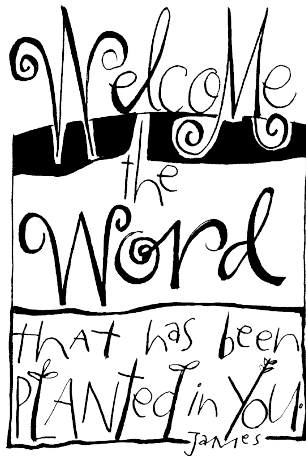 Welcome
the
Word
that has been
PLANTed in you.
James